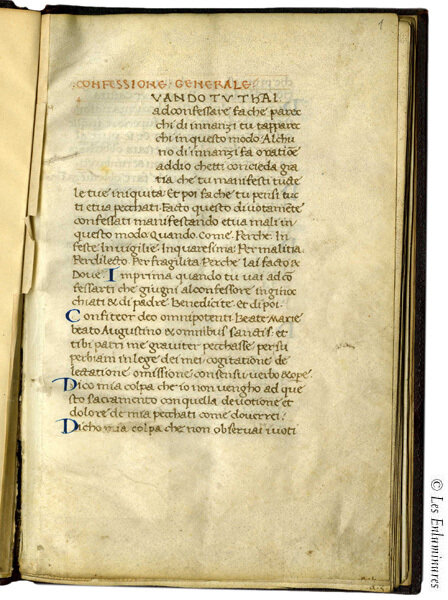 1
CONFESSIONE GENERALE.
VANDO TV THAI
ad confessare fa che parec
chi dinnanzi tu tapparec
chi in questo modo. Alchu
no di innanzi fa oratione
addio chetti concieda gra
tia che tu manifesti tucte
le tue iniquita. Et poi fa che tu pensi tuc
ti e tua pecchati. Facto questo divotamente
confessati manifestando e tua mali in
questo modo. quando. Come. Perche. In
feste. In vigilie. In quaresima. Per malitia
Per dilecto. Per fragilita. Perche lai facto &
Dove. Imprima quando tu vai ad co
fessarti che giugni al confessore inginoc
chiati & di padre. Benedicite. et di poi.
Confiteor deo omnipotenti. Beate Marie
beato Augustino & omnibus sanctis. et
tibi patri me graviter pecchasse per su
perbiam in lege dei mei. cogitatione de
lectatione. omissione. consensu. verbo & ope
Dico mia colpa che io non vengho ad que
sto sacramento con quella devotione et
dolore de mia pecchati come doverrei.
Dicho mia colpa che non observai i voti
© Les Enluminures